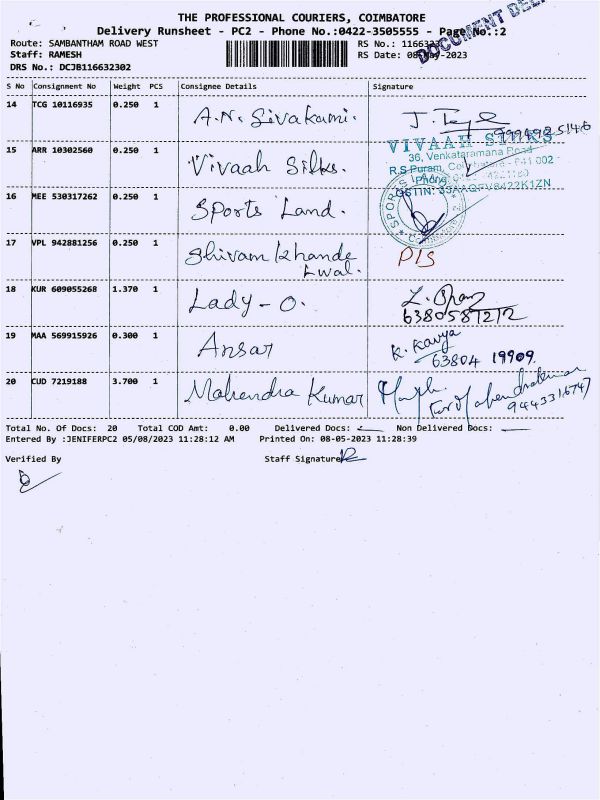 THE PROFESSIONAL COURIERS, COIMBATORE
Delivery Runsheet - PC2 - Phone No.:0422-3505555 - Page No.:2
DOCUMENT
Route: SAMBANTHAM ROAD WEST
RS No.: 1166323
Staff: RAMESH
RS Date: 08-May-2023
DRS No.: DCJB116632302
S No Consignment No Weight PCS Consignee Details Signature
14 TCG 10116935 0.250 1 A.N. Sivakami.
15 ARR 10302560 0.250 1 Vivaah Silks. VIVAAH SILKS
36, Venkataramana Road
R.S Puram, Coimbatore - 641 002
Phone:
GSTIN: 33AAQFV8422K1ZN
16 MEE 530317262 0.250 1 Sports Land. SPORTS LAND
17 VPL 942881256 0.250 1 Shivam Khande
lwal. P/S
18 KUR 609055268 1.370 1 Lady - O.
6380587212
19 MAA 569915926 0.300 1 Ansar K. Kavya
63804 19909
20 CUD 7219188 3.700 1 Mahendra Kumar
For Mahendrakumar
9443316747
Total No. Of Docs: 20 Total COD Amt: 0.00 Delivered Docs: Non Delivered Docs:
Entered By :JENIFERPC2 05/08/2023 11:28:12 AM Printed On: 08-05-2023 11:28:39
Verified By Staff Signature